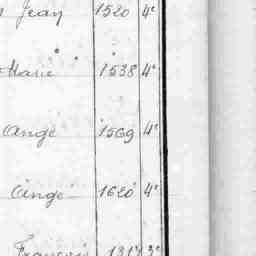 Jean 1520 4e
Marie 1538 4e
Ange 1569 4e
Ange 1620 4e
François 3e